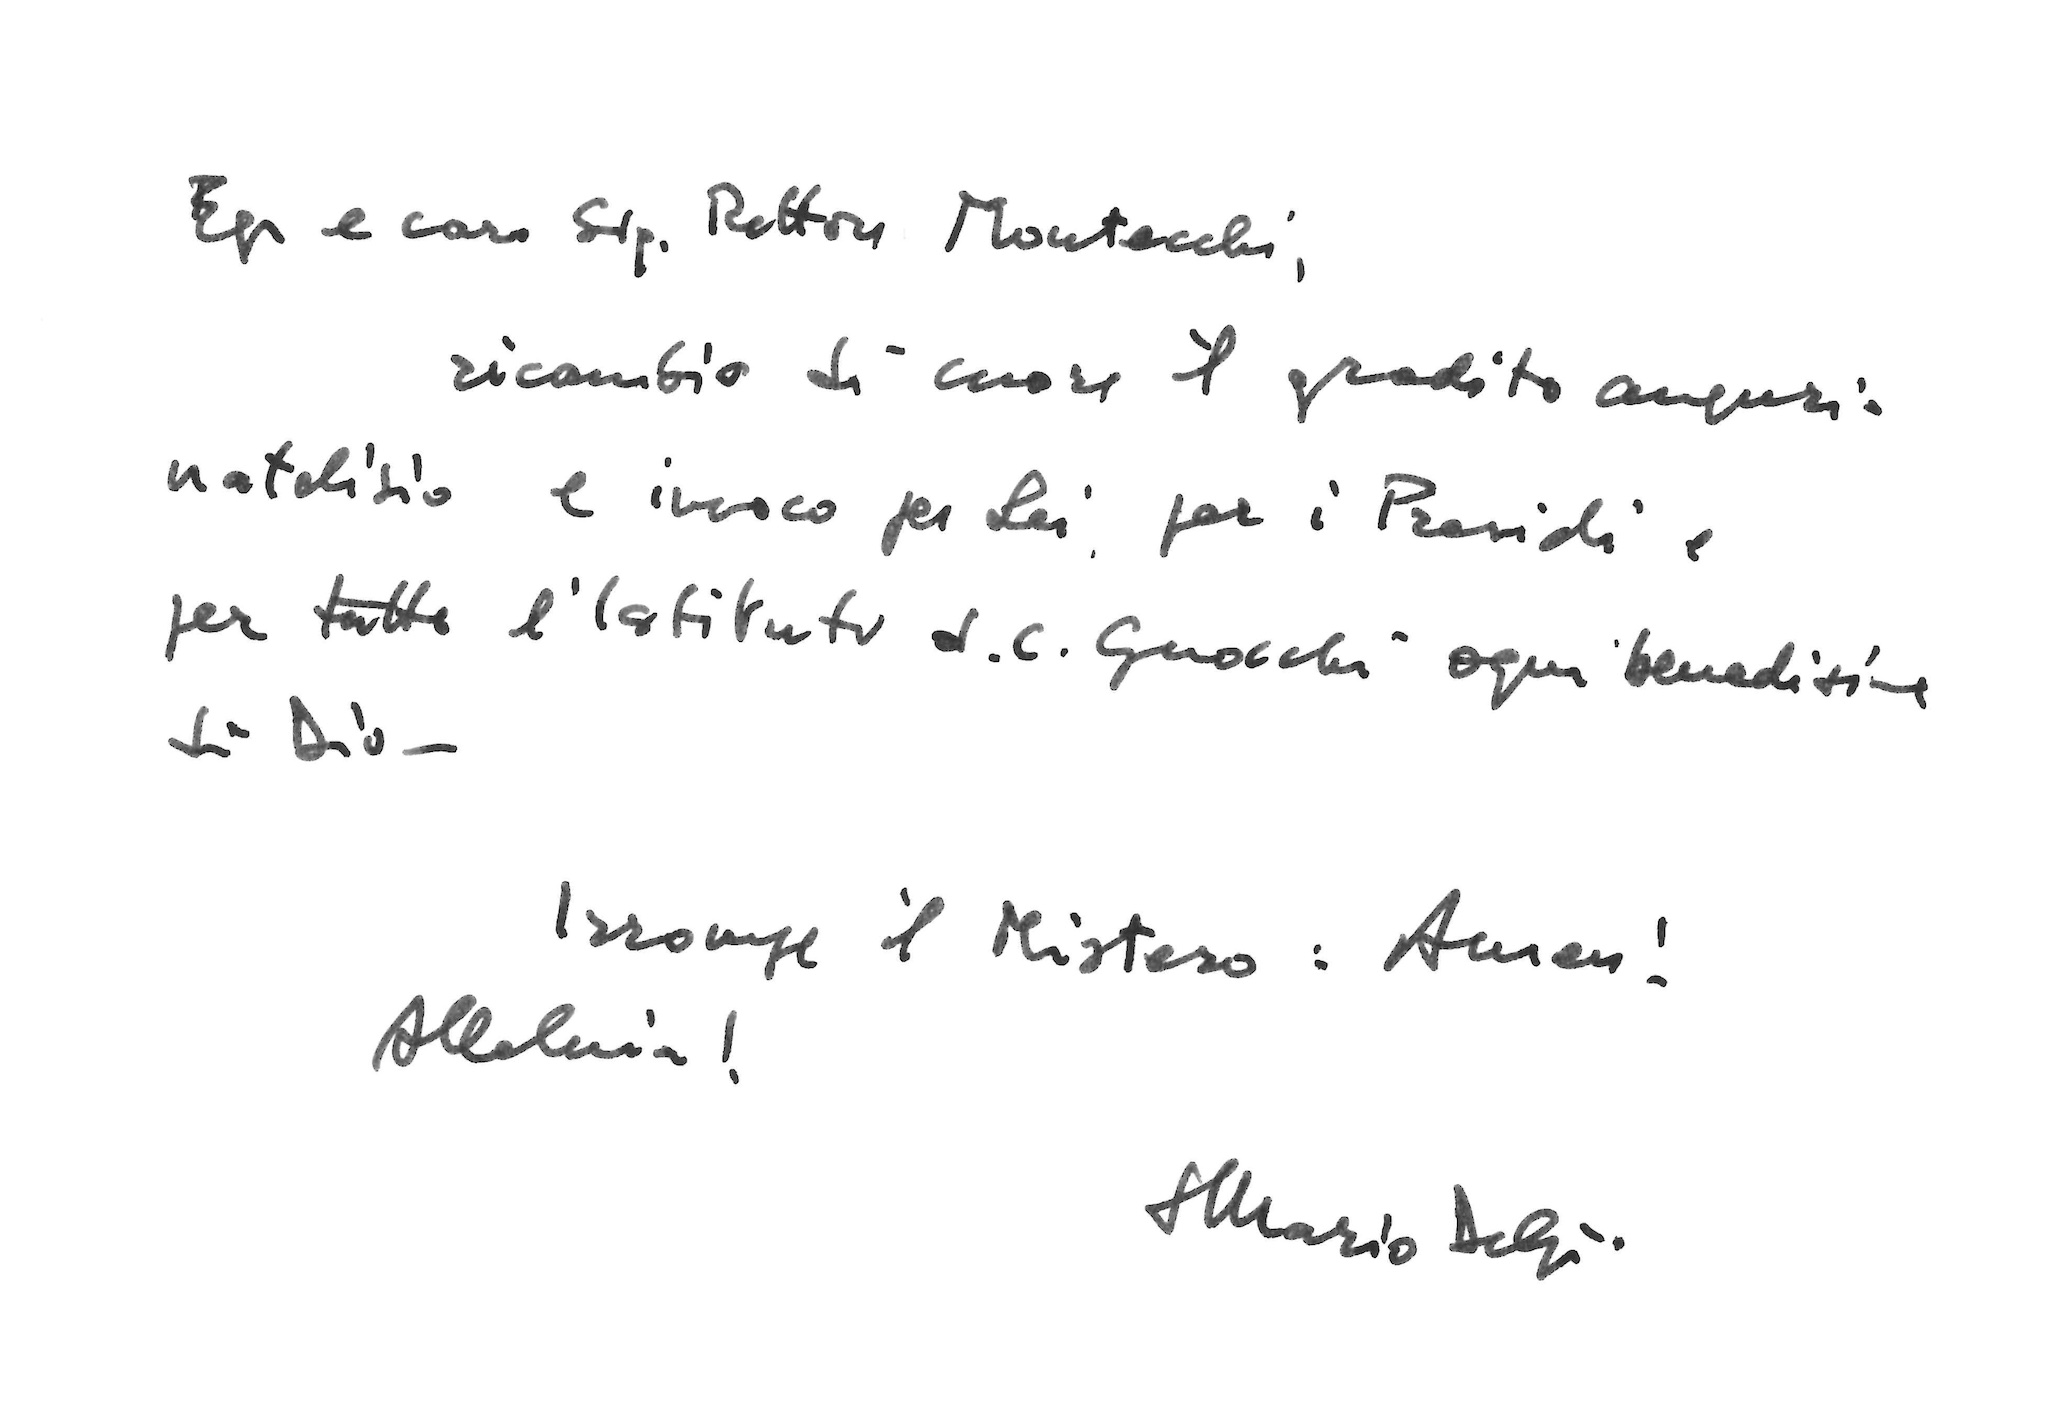 Egr e caro Sig. Rettore Montecchi,
ricambio di cuore il gradito augurio
natalizio e invoco per Lei, per i Presidi e
per tutto l'Istituto d. C. Gnocchi ogni benedizione
di Dio -
Irrompe il Mistero : Amen!
Alleluia!
Mario Delpi.